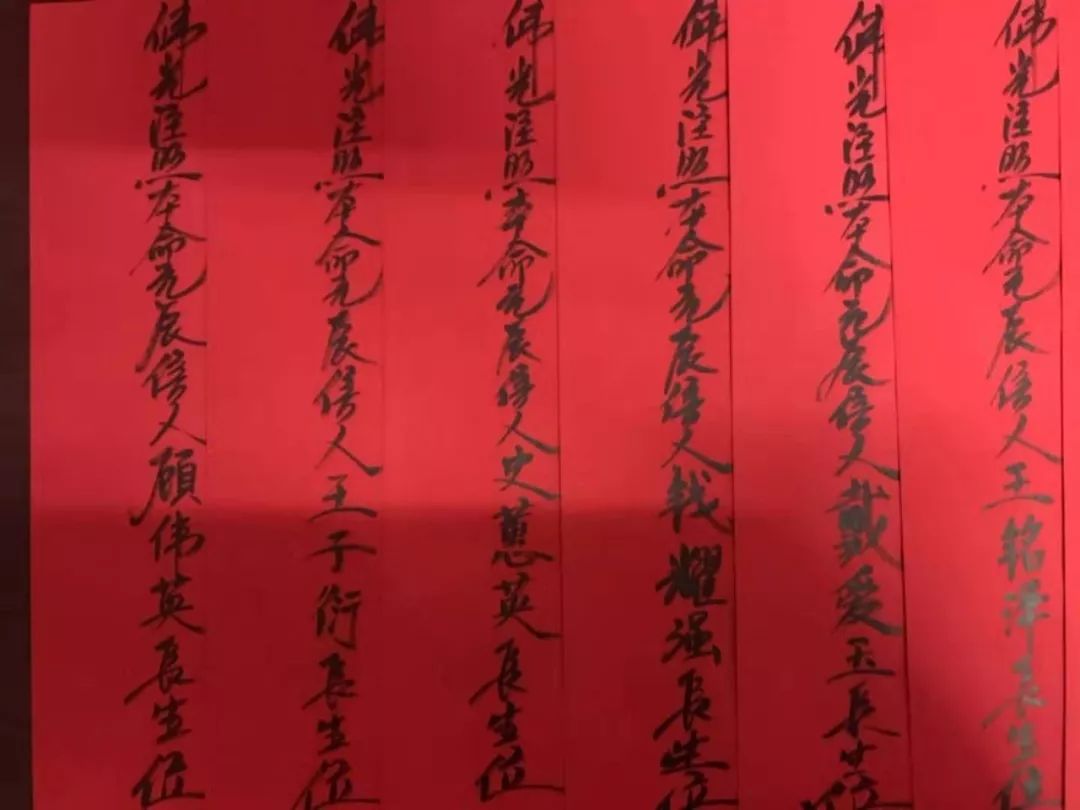 佛光注照本命元辰信人王铭泽长生位
佛光注照本命元辰信人戴爱玉长生位
佛光注照本命元辰信人钱耀强长生位
佛光注照本命元辰信人史蕙英长生位
佛光注照本命元辰信人王子衍长生位
佛光注照本命元辰信人顾伟英长生位